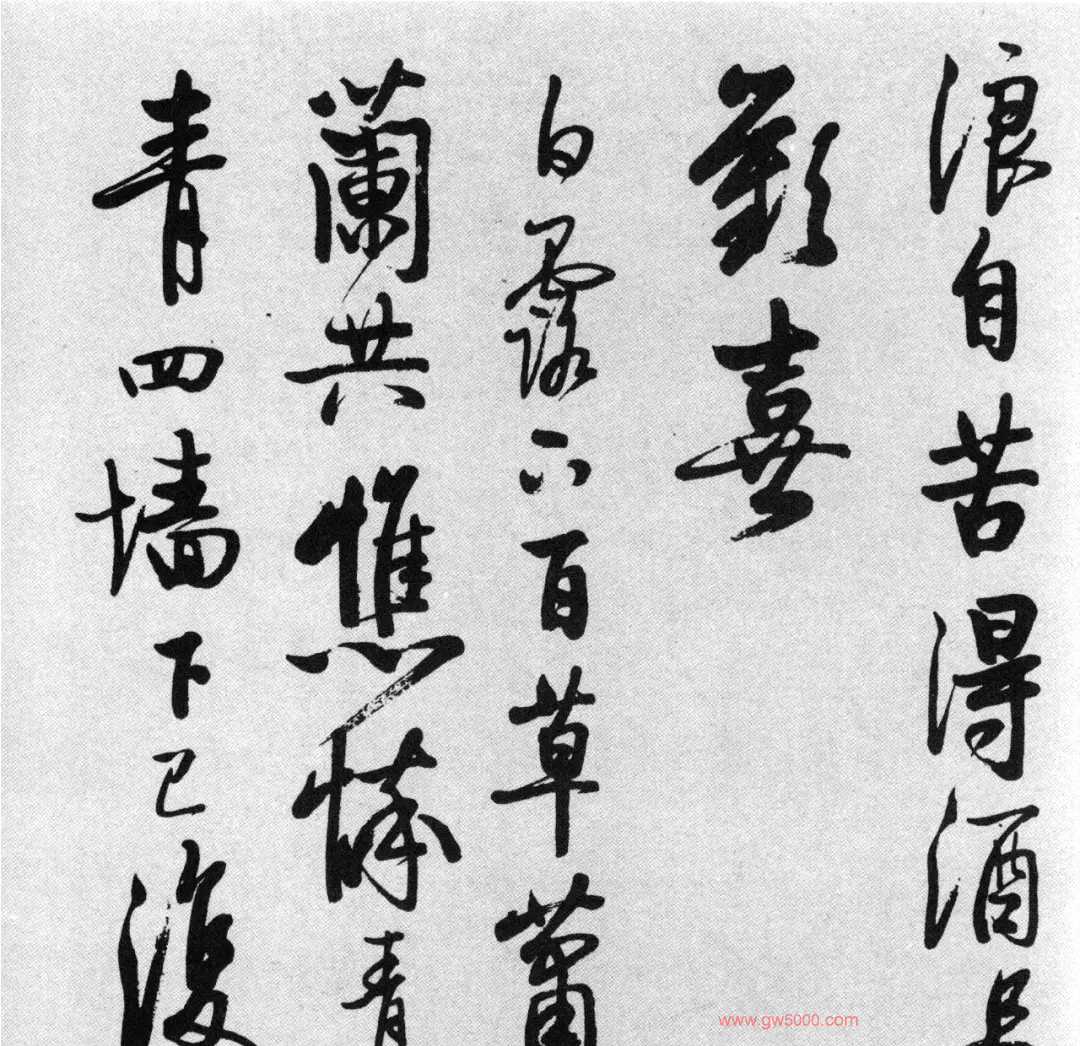 浪自苦得酒且
歡喜
白露下百草蕭
蘭共憔悴青
青四墙下已復
www.gw5000.com